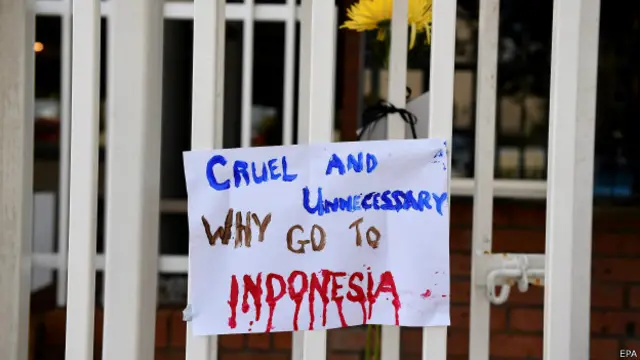 CRUEL AND
UNNECESSARY
WHY GO TO
INDONESIA
EPA